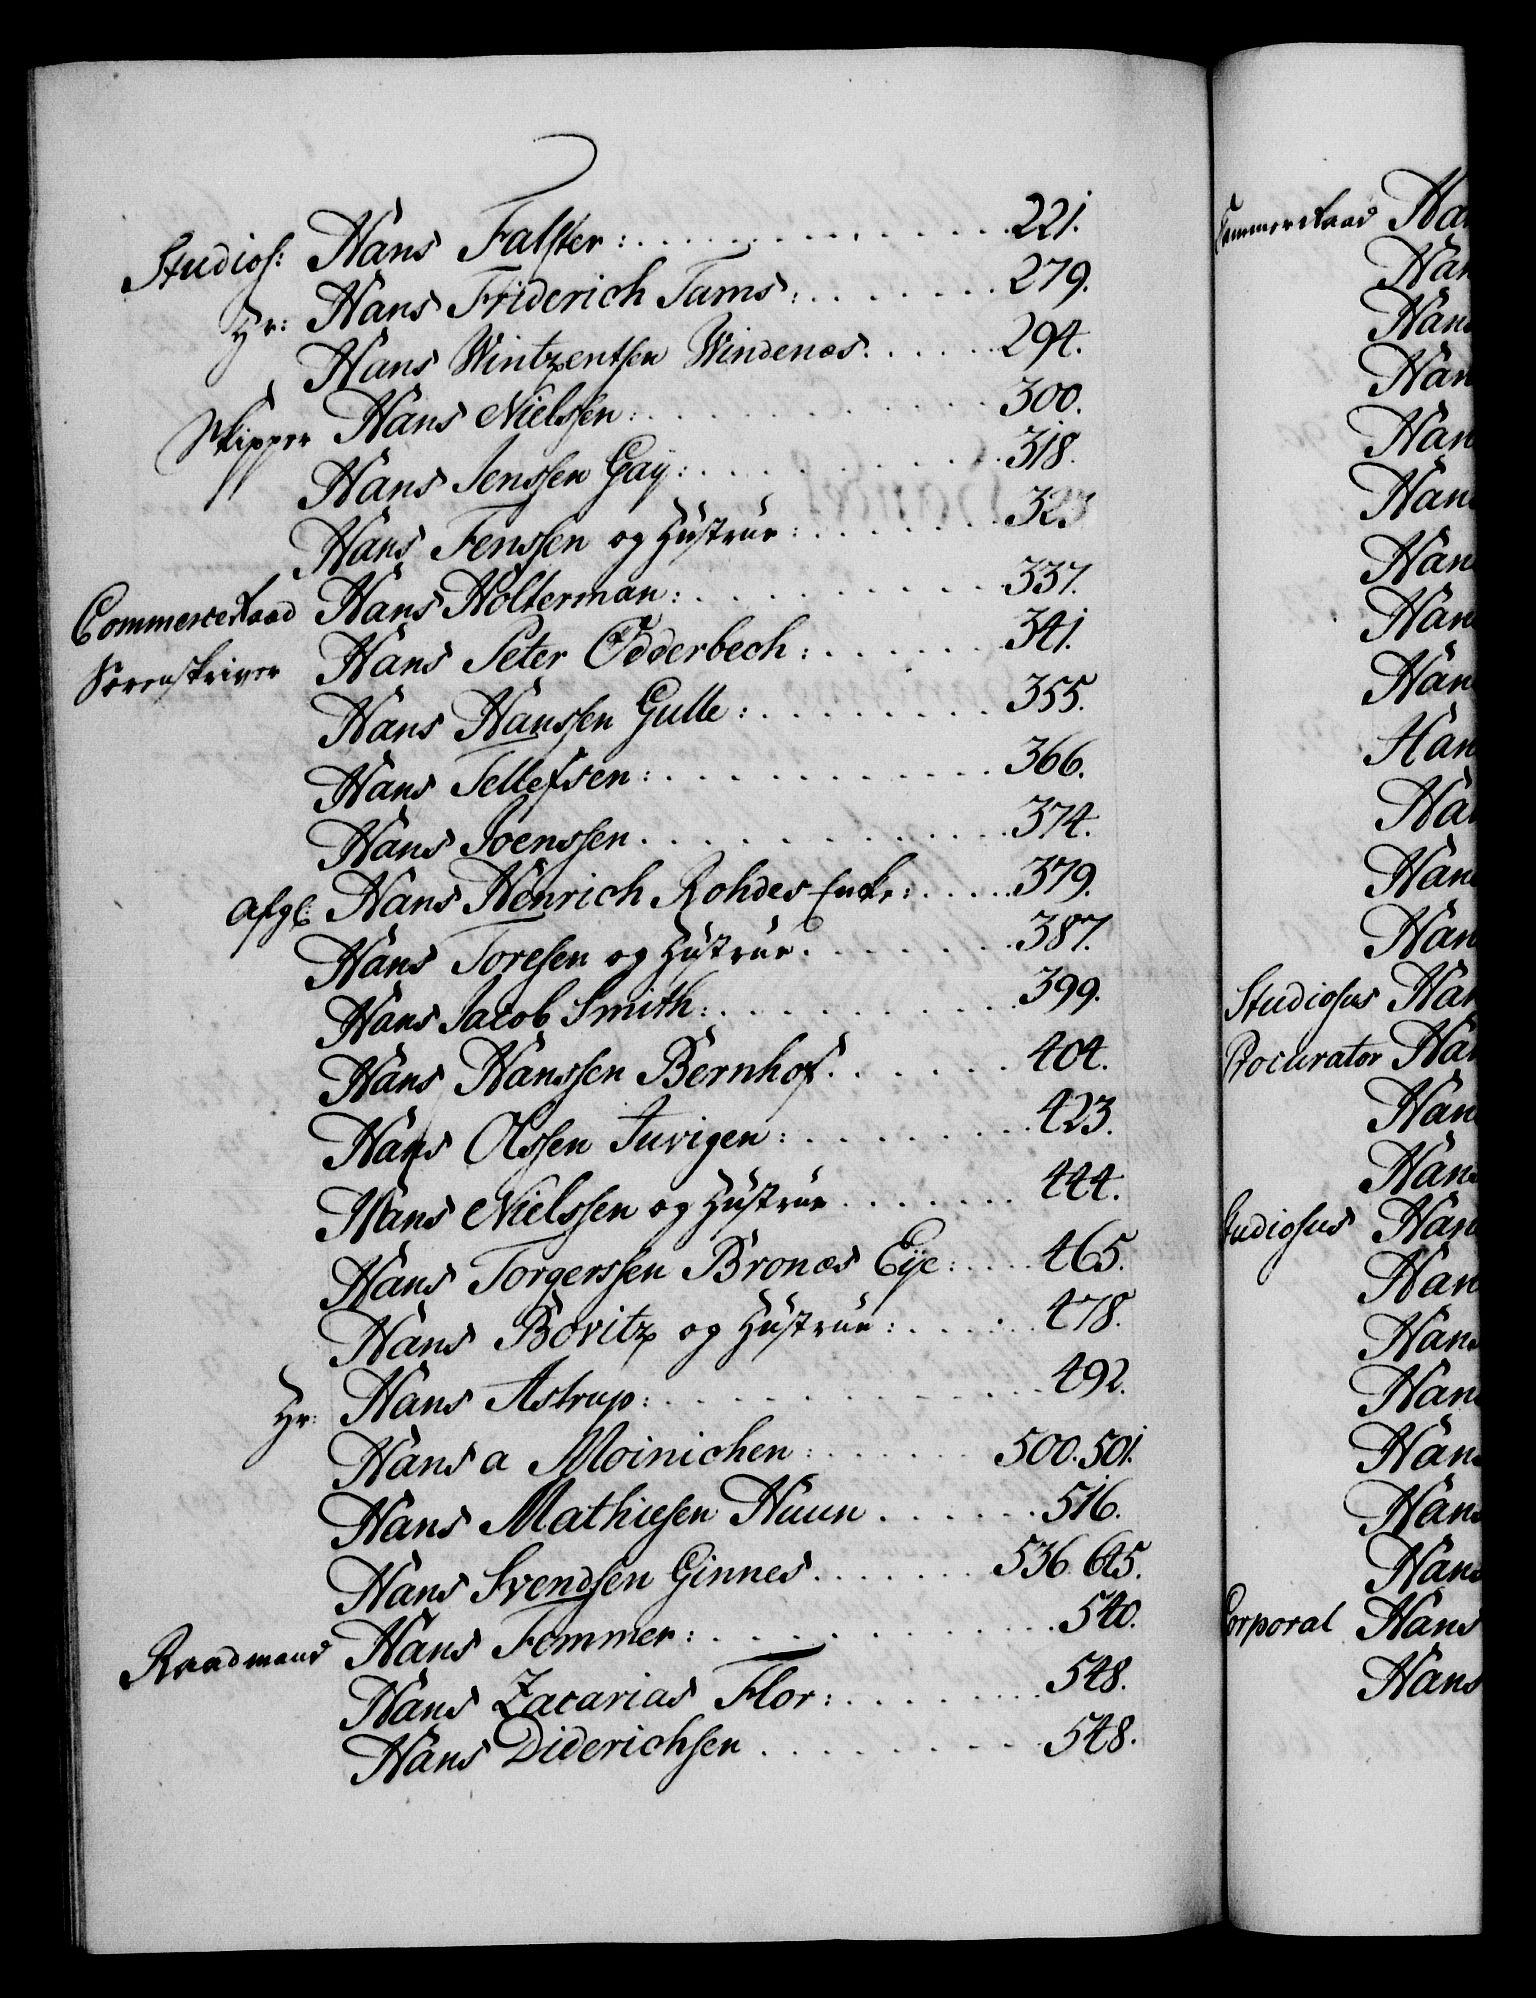 Studios: Hans Falster: 221.
Hr: Hans Friderich Tams: 279.
Hans Wintzentsen Windenæs. 294.
Skipper Hans Nielssen: 300.
Hans Jenssen Gay: 318.
Hans Jenssen og Hustrue: 323
Commerceraad Hans Holterman: 337.
Sorenskriver Hans PeterÖdderbech: 341.
Hans Hanssen Gulle: 355.
Hans Tellefsen: 366.
Hans Joenssen. 374.
Afgl: Hans Henrich Rohdes Enke: 379.
Hans Toresen og Hustrue. 387.
Hans Jacob Smith: 399.
Hans Hanssen Bernhof. 404.
Hans Olssen Juvigen: 423.
Hans Nielssen og Hustrue 444.
Hans Torgerssen Bronæs Eye: 465.
Hans Bovitz og Hustrue: 478.
Hr: Hans Astrup: 492.
Hans a Moinichen: 500. 501.
Hans Mathiesen Huun 516.
Hans Svendsen Ginnes. 536 645.
Raadmand Hans Fommer: 540.
Hans Zacarias Flor: 548.
Hans Diderichsen 548.
Han
Han
Han
Han
Han
Han
Han
Han
Han
Han
Han
Han
Studiosus Han
Procurator Han
Han
Hans
Han
Han
Hans
Han
Han
Hans
Hans
Corporal Hans
Hans